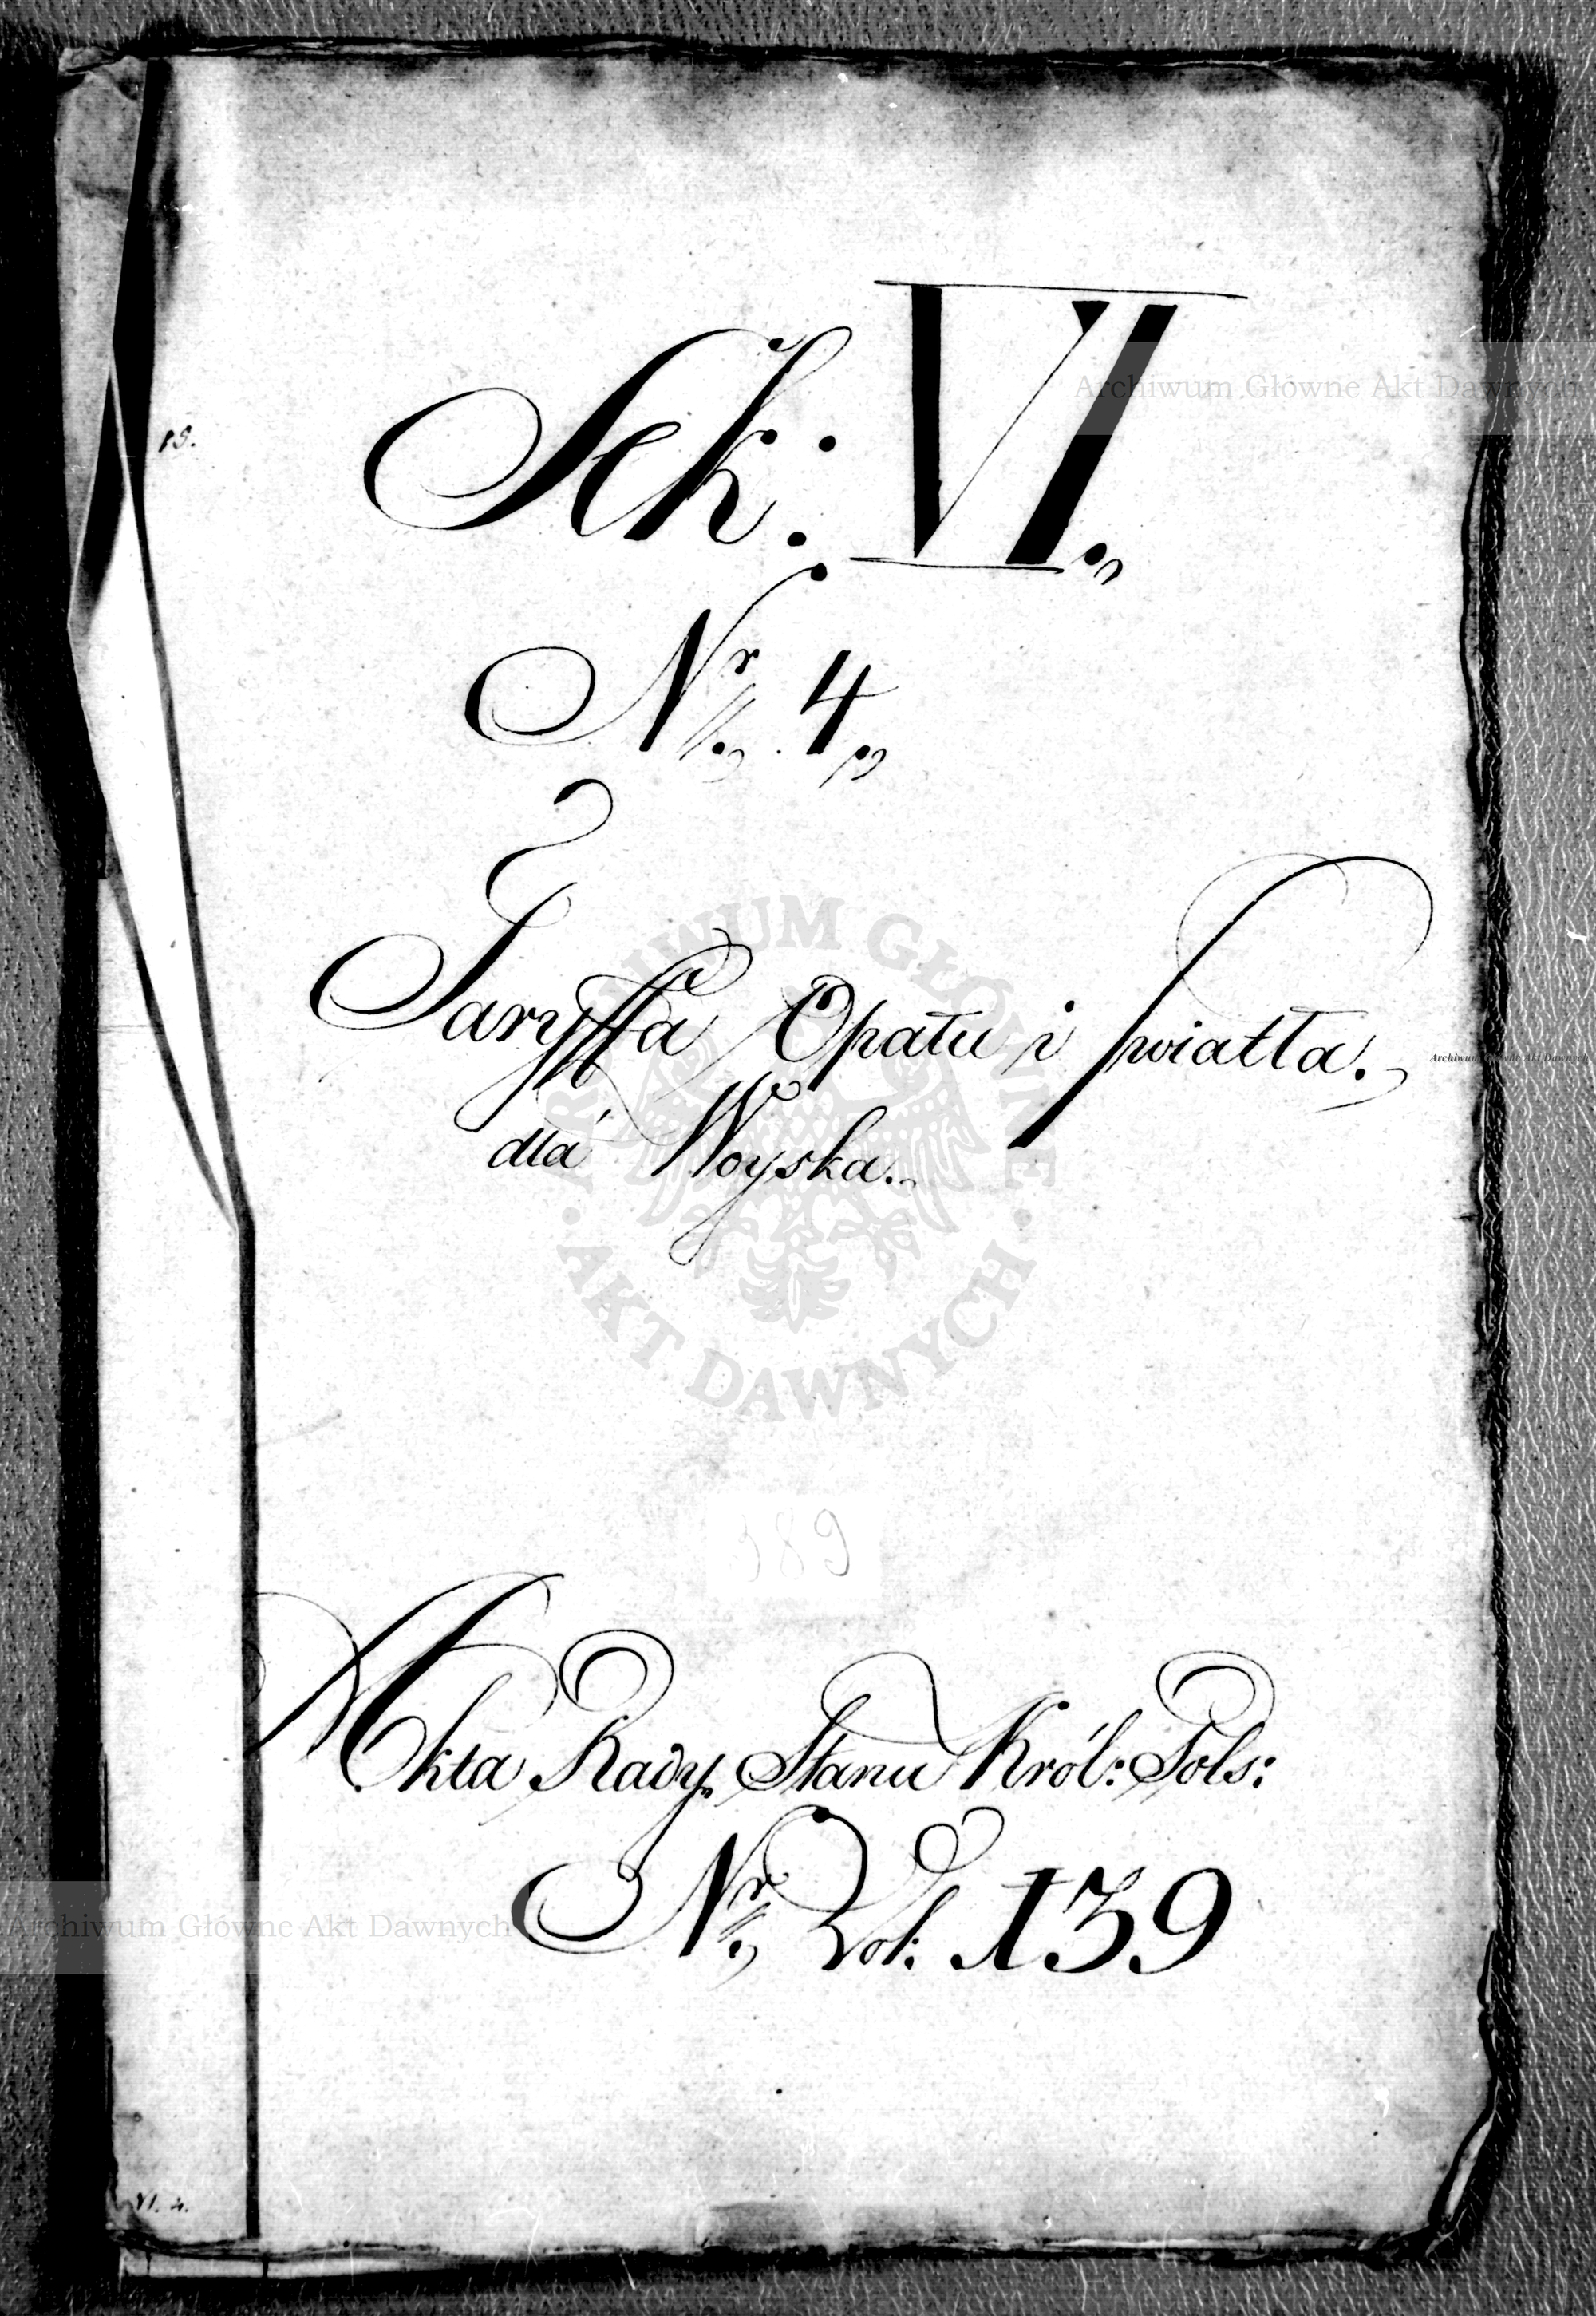 19.
Sek: VI.,
Nr. 4.,
Taryffa Opału i światła.
dla Woyska.
189
Akta Rady Stanu Król: Pols:
Nr. Vol: 139
VI. 4.
Archiwum Główne Akt Dawnych
Archiwum Główne Akt Dawnych
Archiwum Główne Akt Dawnych
ARCHIWUM GŁÓWNE
AKT DAWNYCH